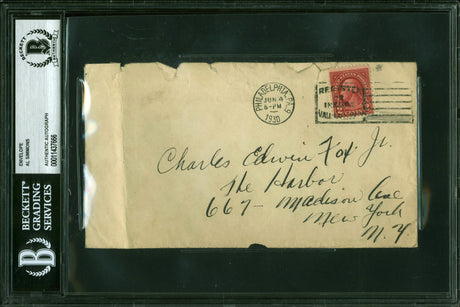 BECKETT
AUTHENTICITY
ENVELOPE
AL SIMMONS
AUTHENTIC AUTOGRAPH
00011437666
BECKETT™
GRADING
SERVICES
PHILADELPHIA, PA.
JUN 4
6-PM
1930
REGISTER
Charles Edwin Fox Jr.
The Harbor
667 Madison Ave
New York
N.Y.